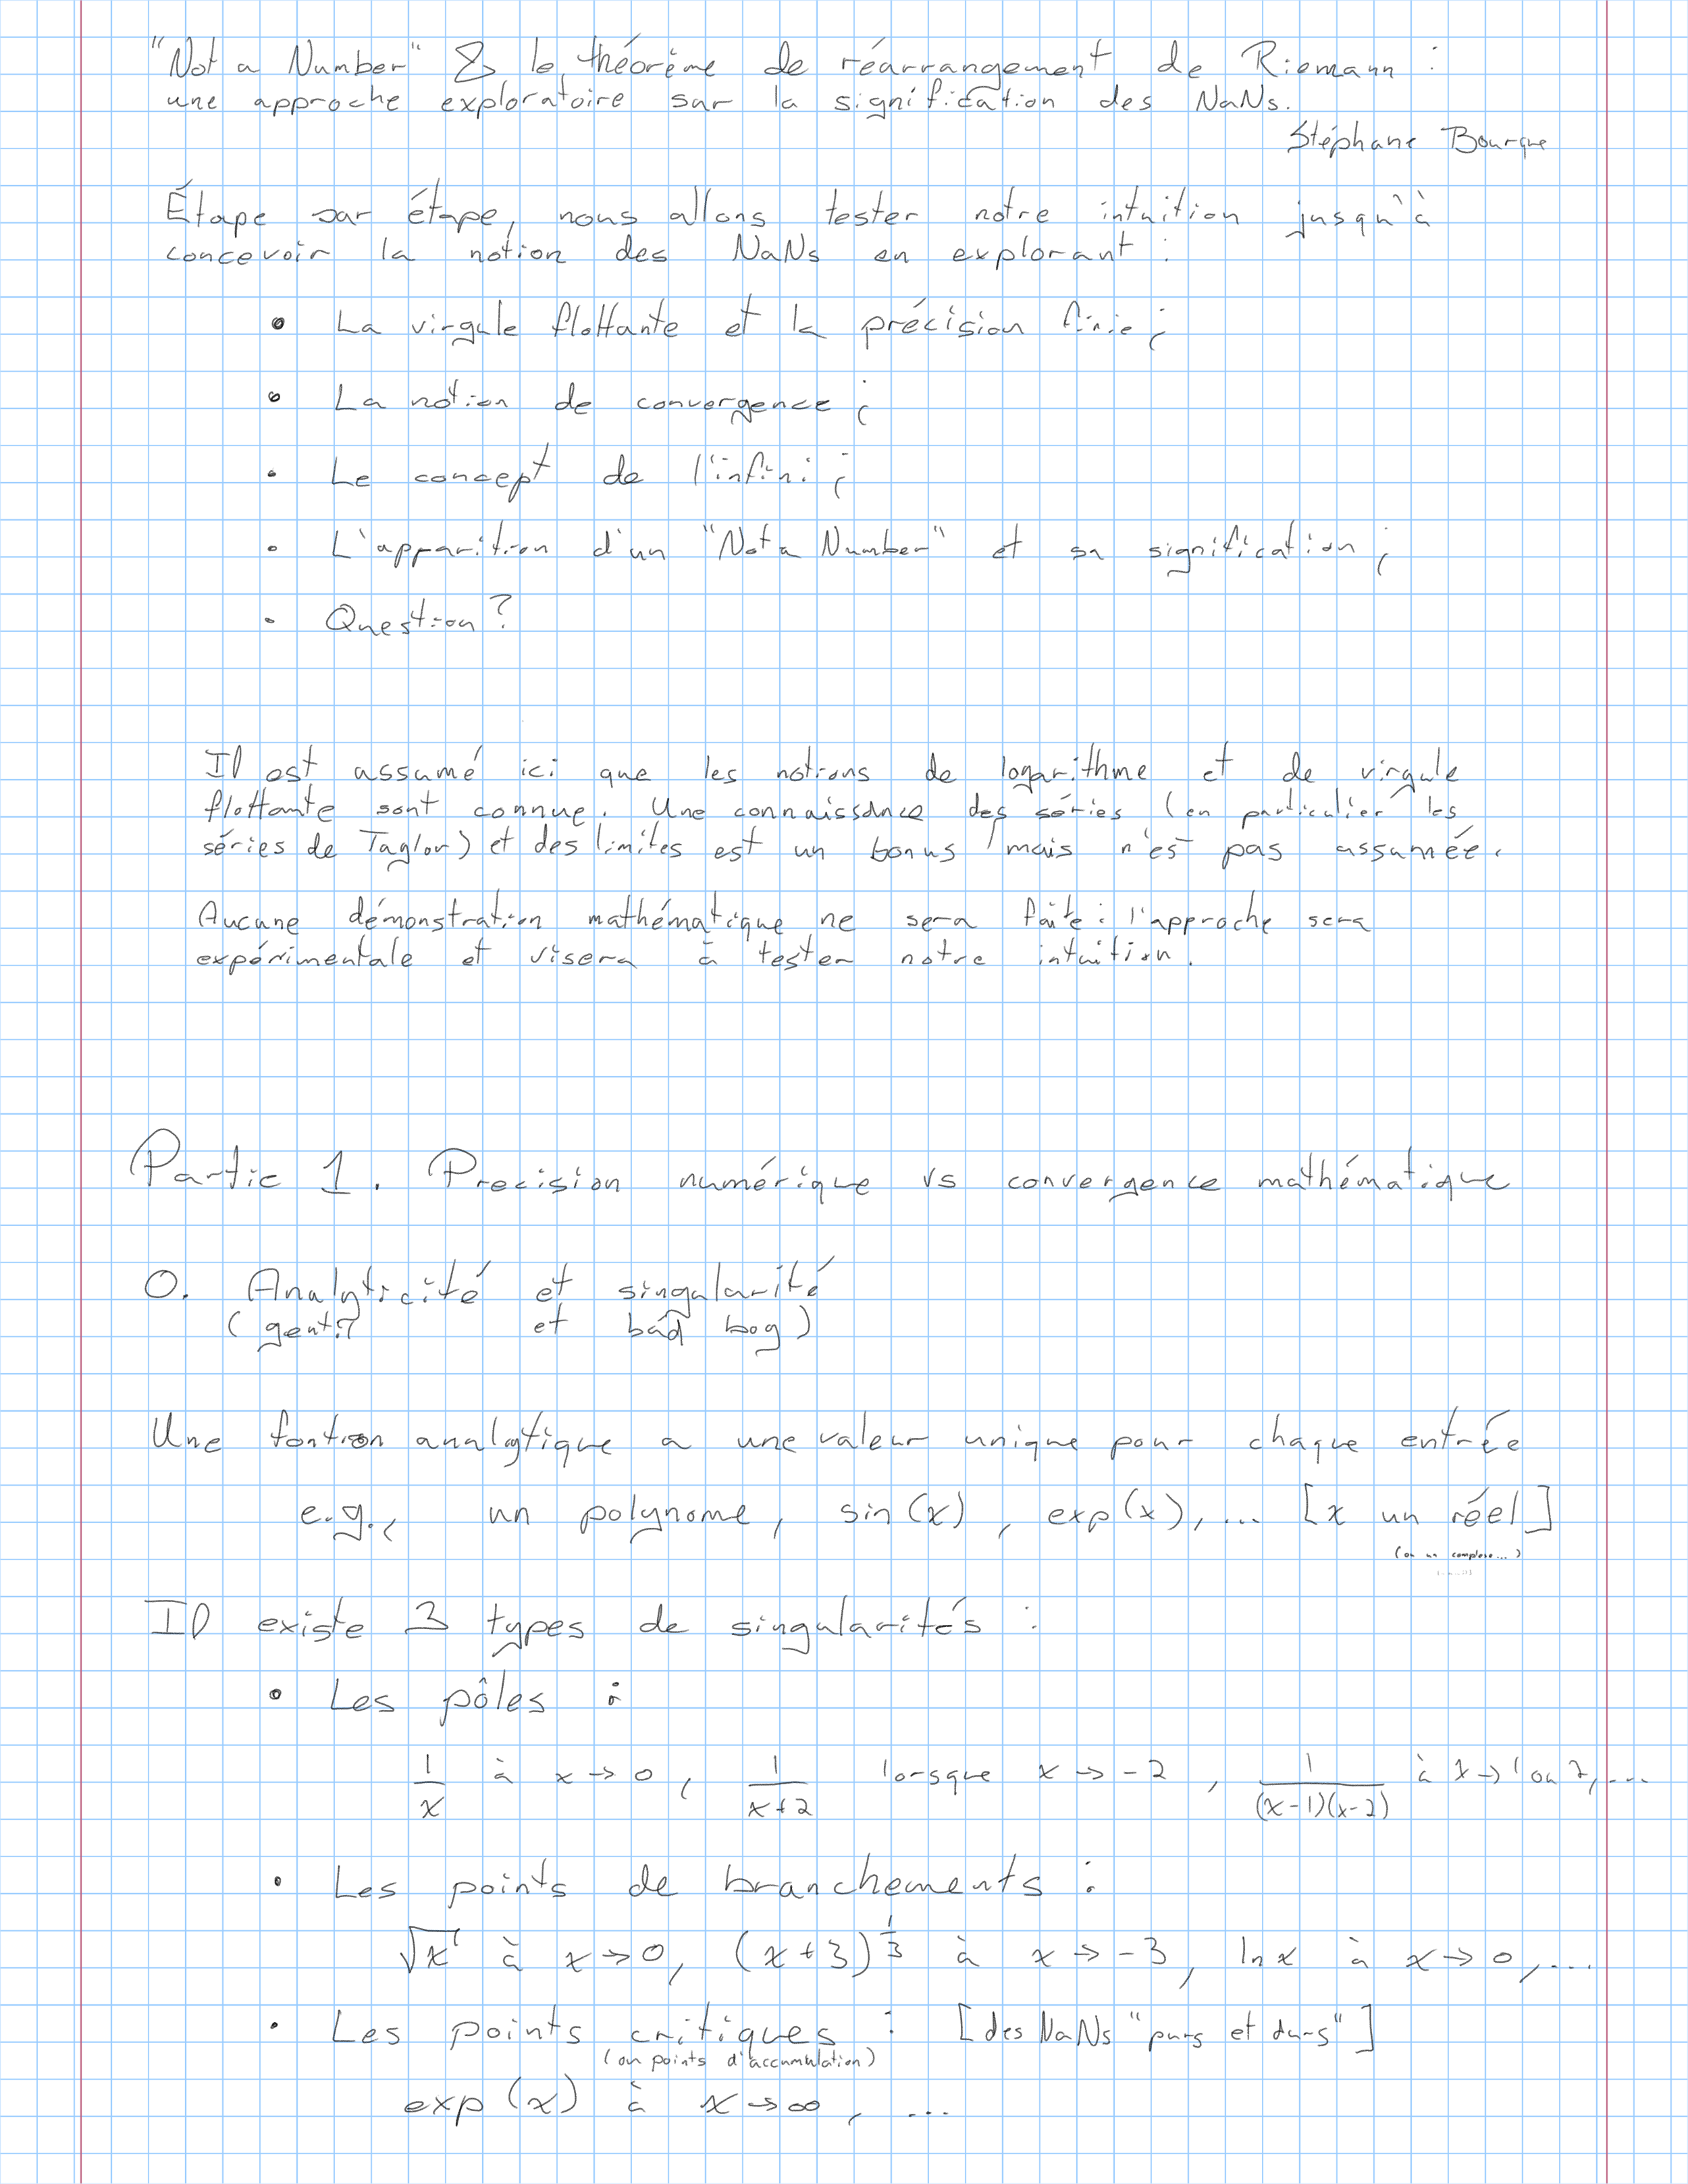 "Not a Number" & le théorème de réarrangement de Riemann :
une approche exploratoire sur la signification des NaNs.
Stéphane Bourque
Étape par étape, nous allons tester notre intuition jusqu'à
concevoir la notion des NaNs en explorant :
• La virgule flottante et la précision finie ;
• La notion de convergence ;
• Le concept de l'infini ;
• L'apparition d'un "Not a Number" et sa signification ;
• Question ?
Il est assumé ici que les notions de logarithme et de virgule
flottante sont connue. Une connaissance des séries (en particulier les
séries de Taylor) et des limites est un bonus mais n'est pas assumée.
Aucune démonstration mathématique ne sera faite : l'approche sera
expérimentale et visera à tester notre intuition.
Partie 1. Precision numérique vs convergence mathématique
0. Analyticité et singularité
(gentil et bad boy)
Une fontion analytique a une valeur unique pour chaque entrée
e.g., un polynome, sin(x), exp(x), ... [x un réel]
(ou un complexe...)
Il existe 3 types de singularités :
• Les pôles :
1/x à x → 0, 1/(x+2) lorsque x → -2, 1/((x-1)(x-2)) à x → 1 ou 2, ...
• Les points de branchements :
√x à x → 0, (x+3)^(1/3) à x → -3, ln x à x → 0, ...
• Les points critiques : [des NaNs "purs et durs"]
(ou points d'accumulation)
exp(x) à x → ∞, ...